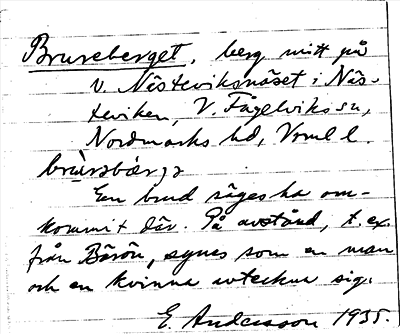 Bruseberget, berg mitt på
v. Nästeviksnäset i Näs-
teviken, V. Fågelviks sn,
Nordmarks hd, Vrml l.
En brud säges ha om-
kommit där. På avstånd, t. ex.
från Bärön, synes som en man
och en kvinna avteckna sig.
E. Andersson 1935.